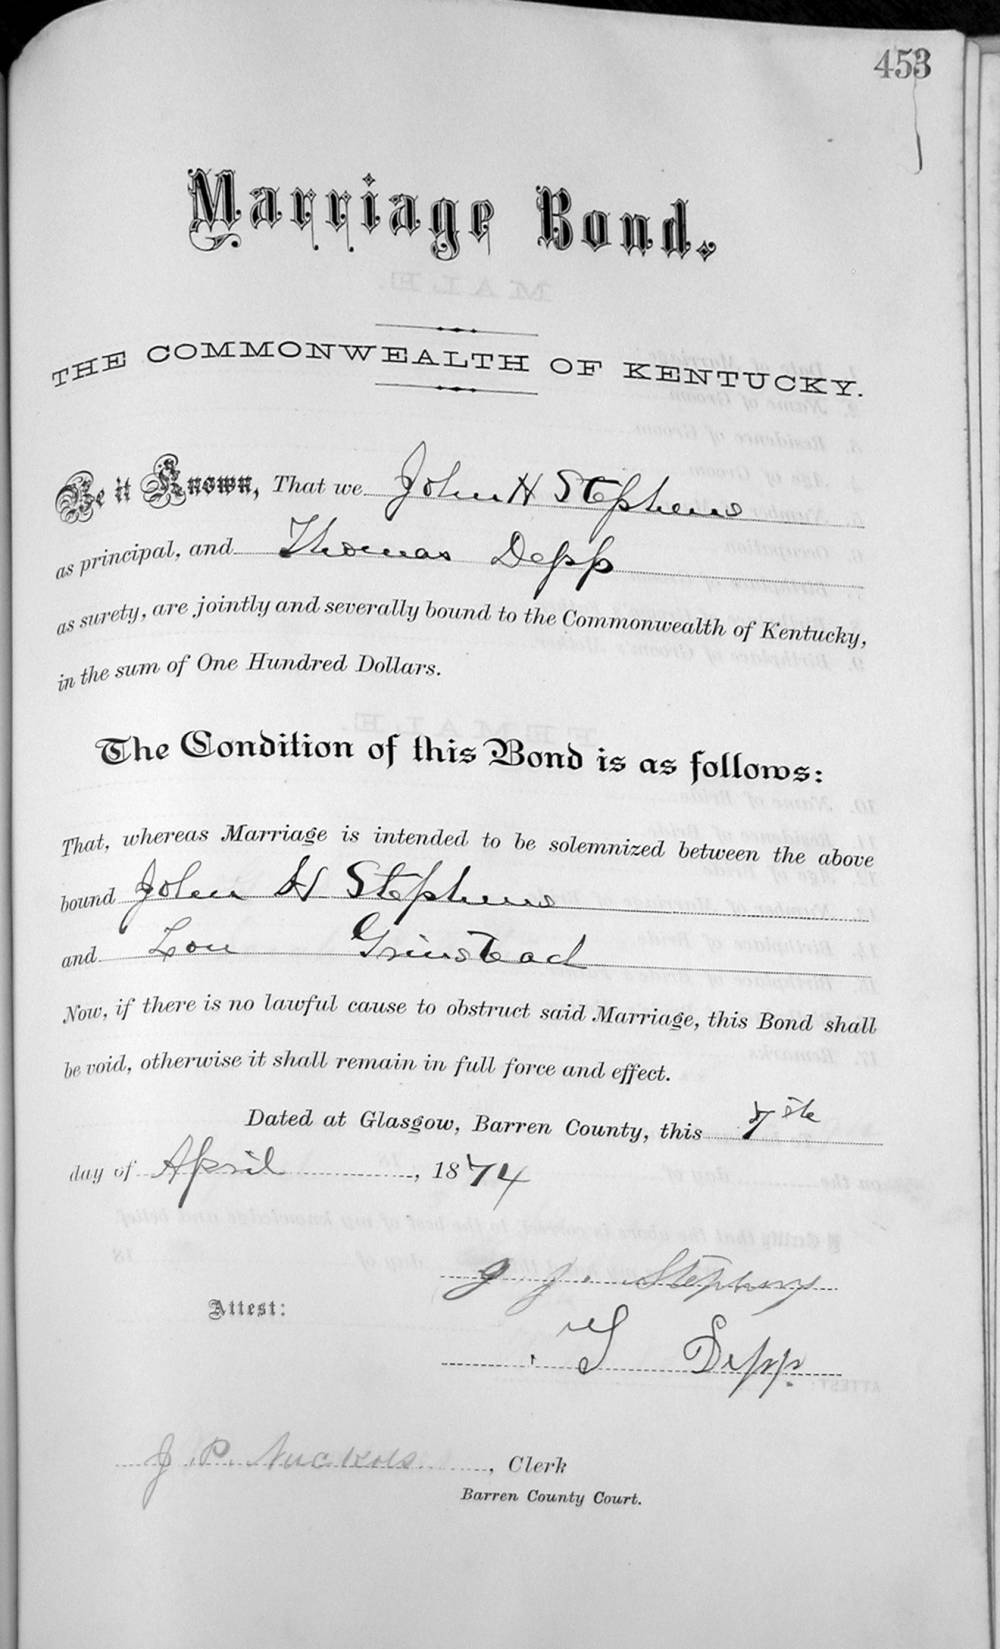 453
Marriage Bond.
THE COMMONWEALTH OF KENTUCKY.
Be it Known, That we John H Stephens
as principal, and Thomas Depp
as surety, are jointly and severally bound to the Commonwealth of Kentucky,
in the sum of One Hundred Dollars.
The Condition of this Bond is as follows:
That, whereas Marriage is intended to be solemnized between the above
bound John H Stephens
and Lou Grinstead
Now, if there is no lawful cause to obstruct said Marriage, this Bond shall
be void, otherwise it shall remain in full force and effect.
Dated at Glasgow, Barren County, this
day of April, 1874
J. Stephens
Attest:
T Depp.
J. P. Nuckols, Clerk
Barren County Court.